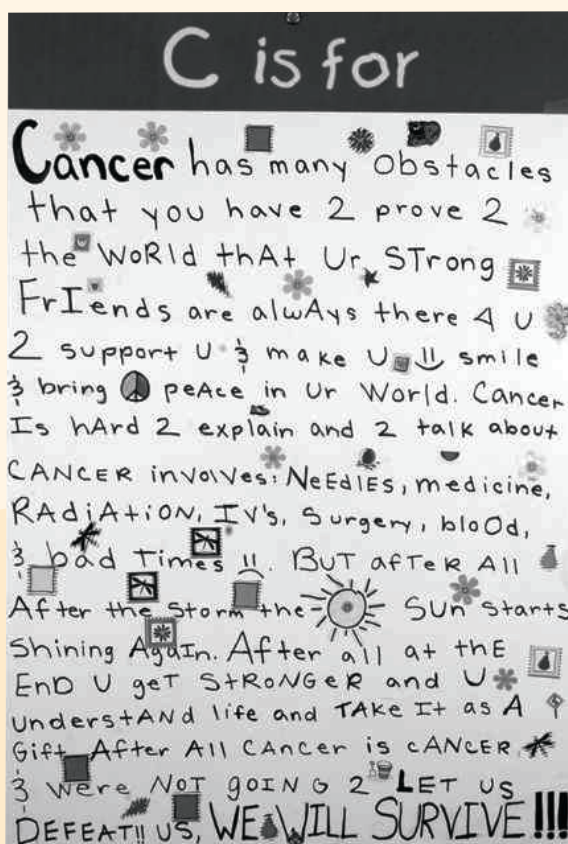 C is for
Cancer has many obstacles
that you have 2 prove 2
the WoRld thAt Ur STrong
FrIends are alwAys there 4 U
2 support U & make U smile
& bring peAce in Ur World. Cancer
Is hArd 2 explain and 2 talk about
CANCER involves: NeEdlEs, medicine,
RAdiAtiON, IV's, Surgery, bloOd,
& bad Times. BUT afTeR All
After the Storm the SUN Starts
Shining AgaIn. After all at thE
EnD U geT StRoNGeR and U
understAND life and TAKE It as A
Gift. After All CAncer is cANCER
& were NOT goING 2 LET us
DEFEAT!! US, WE WILL SURVIVE!!!